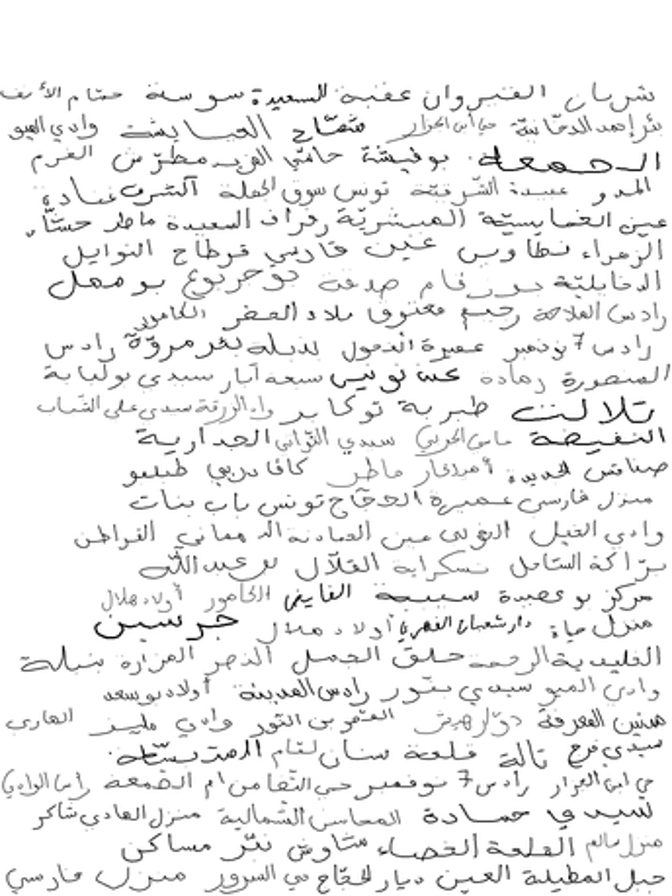 شربان القيروان عقبة السعيدة سوسة حمّام الأنف
بئر أحمد الدخانية حي ابن الجزار شمّاخ العيايشة وادي
الجمعة بوفيشة حامّي مطرّش القرم
عبيدة الشرفية تونس سوق الجملة الشرف عبادة
عين الغسايسيّة المبشريّة رفراف السعيدة ماطر حشّاد
الزهراء نطاوس عين قادسي قرطاج النوايل
الدخايليّة بورقام صدقة بوجربوع بومهل
رادس الفلاحة رحيم معتوق بلاد الحضر
رادس 7 نوفمبر عميرة الفحول نبلة بئر مروّة رادس
المنصورة رمادة عين تونس سبعة آبار سيدي بولبابة
تلالت طبرية توكابر واد الزرقة سيدي علي الشباب
النفيضة ماس الحربي سيدي التواتي الجدارية
صفاقس الجديدة أميلكار ماطر كاف دربي طبلبو
منزل فارسي عميرة الحجّاج تونس باب بنات
وادي الفيل عين العبادنة الدهماني القواطن
برّاكة الساحل سكرابة القلال بو عبد اللّه
مركز بوعصيدة سبيبة الفايض الخامور أولاد هلال
منزل حياة دار شعبان الفهري أولاد جرسين
القليدية الرحمة حلق الجمل النصر العزازة بنبلة
وادي سيدي بنّور رادس المدينة أولاد بوسعد
هنين المعرفة دوّار هيشر وادي مليز الهاري
سيدي فرج تالة قلعة سنان لتام
حي ابن الجزار رادس 7 نوفمبر حي التضامن أم الضمعة رأس الوادي
سيدي حمادة المحاسن الشمالية منزل الهادي شاكر
منزل سالم القلعة الخصاء شاوش بئر مساكن
جبل المطيلة العين ديار الحجّاج حي السرور منزل فارسي